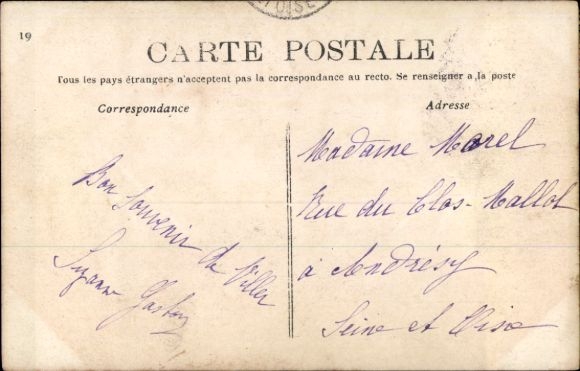 OISE
19
CARTE POSTALE
Tous les pays étrangers n'acceptent pas la correspondance au recto. Se renseigner a la poste
Correspondance
Adresse
Bon Souvenir de Viller
Suzanne Gaston
Madame Morel
Rue du Clos-Mallot
à Andrésy
Seine et Oise